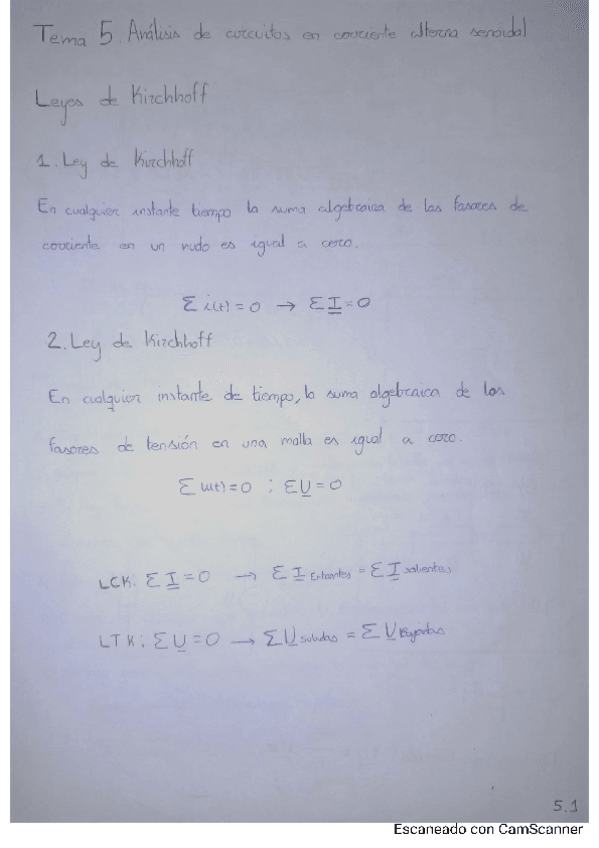 Tema 5. Análisis de circuitos en corriente alterna senoidal
Leyes de Kirchhoff
1. Ley de Kirchhoff
En cualquier instante tiempo la suma algebraica de las fasores de
corriente en un nudo es igual a cero.
Σ i(t) = 0 → Σ I = 0
2. Ley de Kirchhoff
En cualquier instante de tiempo, la suma algebraica de los
fasores de tensión en una malla es igual a cero.
Σ u(t) = 0 ; Σ U = 0
LCK: Σ I = 0 → Σ I Entrantes = Σ I salientes
LTK: Σ U = 0 → Σ U subidas = Σ U Bajadas
5.1
Escaneado con CamScanner